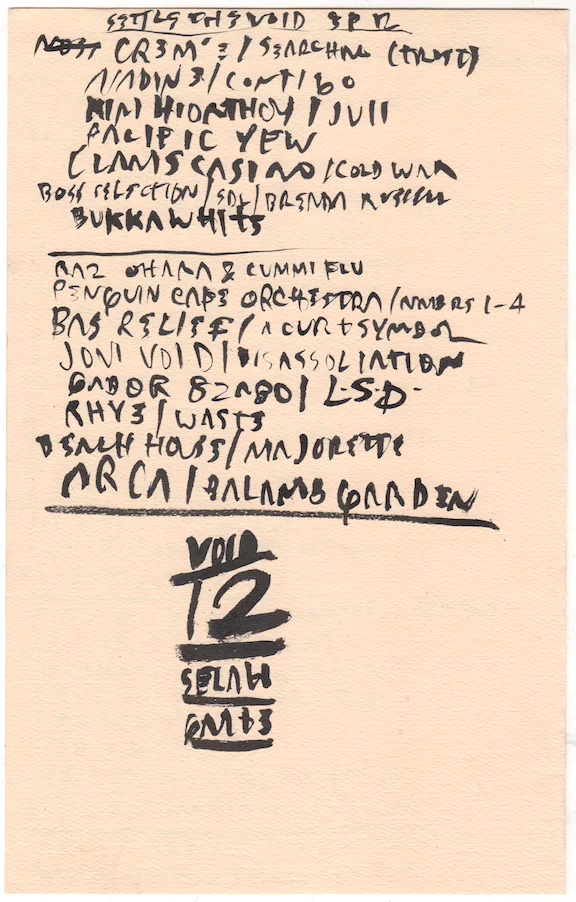 SETTLE THE VOID EP 12
CREME / SEARCHING (TRUST)
NADINE /
KIM HIORTHOY /
PACIFIC YEW
CLAMS CASINO / COLD WAR
BOSS SELECTION / SDL / BRENDA RUSSELL
BUKKA WHITE
RAZ OHARA & GUMMI FLU
PENGUIN CAFE ORCHESTRA / NUMBERS 1-4
BAS RELIEF / A CURT SYMBOL
JONI VOID / DISASSOCIATION
GABOR SZABO / L.S.D.
RHYE / WASTE
BEACH HOUSE / MAJORETTE
ARCA / BALAMB GARDEN
VOID
12
SELAH